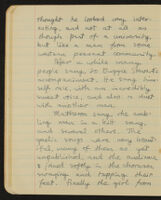 thought he looked very inter-
esting, and not at all as
though part of a university,
but like a man from some
western peasant community.
After a while many
people sang to Biggie Stuart's
accompaniment. He sang him-
self nice, with an incredibly
sweet voice, and also a duet
with another man.
Matheson sang, the under-
ling man in a kilt sang
and several others. The
gaelic songs are very beauti-
ful, many of them as yet
unpublished, and the audience
joined softly in the choruses
humming and tapping their
feet. Finally the girl from